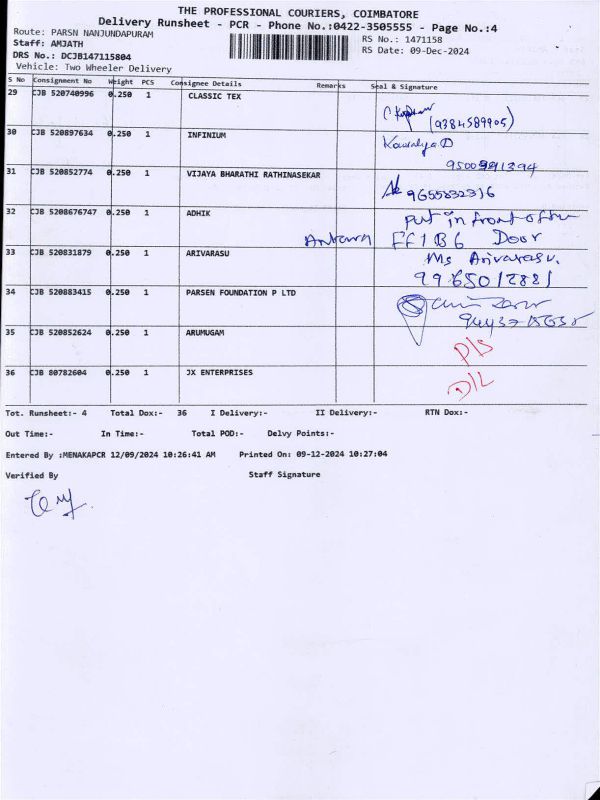 THE PROFESSIONAL COURIERS, COIMBATORE
Delivery Runsheet - PCR - Phone No.:0422-3505555 - Page No.:4
Route: PARSN NANJUNDAPURAM
RS No.: 1471158
Staff: AMJATH
RS Date: 09-Dec-2024
DRS No.: DCJB147115804
Vehicle: Two Wheeler Delivery
S No Consignment No Weight PCS Consignee Details Remarks Seal & Signature
29 CJB 520740996 0.250 1 CLASSIC TEX
(9384589905)
30 CJB 520897634 0.250 1 INFINIUM Kowalya D
9500991394
31 CJB 520852774 0.250 1 VIJAYA BHARATHI RATHINASEKAR
9655832316
32 CJB 5208676747 0.250 1 ADHIK Put in front of the
Antara FF1B6 Door
33 CJB 520831879 0.250 1 ARIVARASU Ms Arivarasu.
9965012881
34 CJB 520883415 0.250 1 PARSEN FOUNDATION P LTD
35 CJB 520852624 0.250 1 ARUMUGAM P/S
36 CJB 80782604 0.250 1 JX ENTERPRISES D/L
Tot. Runsheet:- 4 Total Dox:- 36 I Delivery:- II Delivery:- RTN Dox:-
Out Time:- In Time:- Total POD:- Delvy Points:-
Entered By :MENAKAPCR 12/09/2024 10:26:41 AM Printed On: 09-12-2024 10:27:04
Verified By Staff Signature